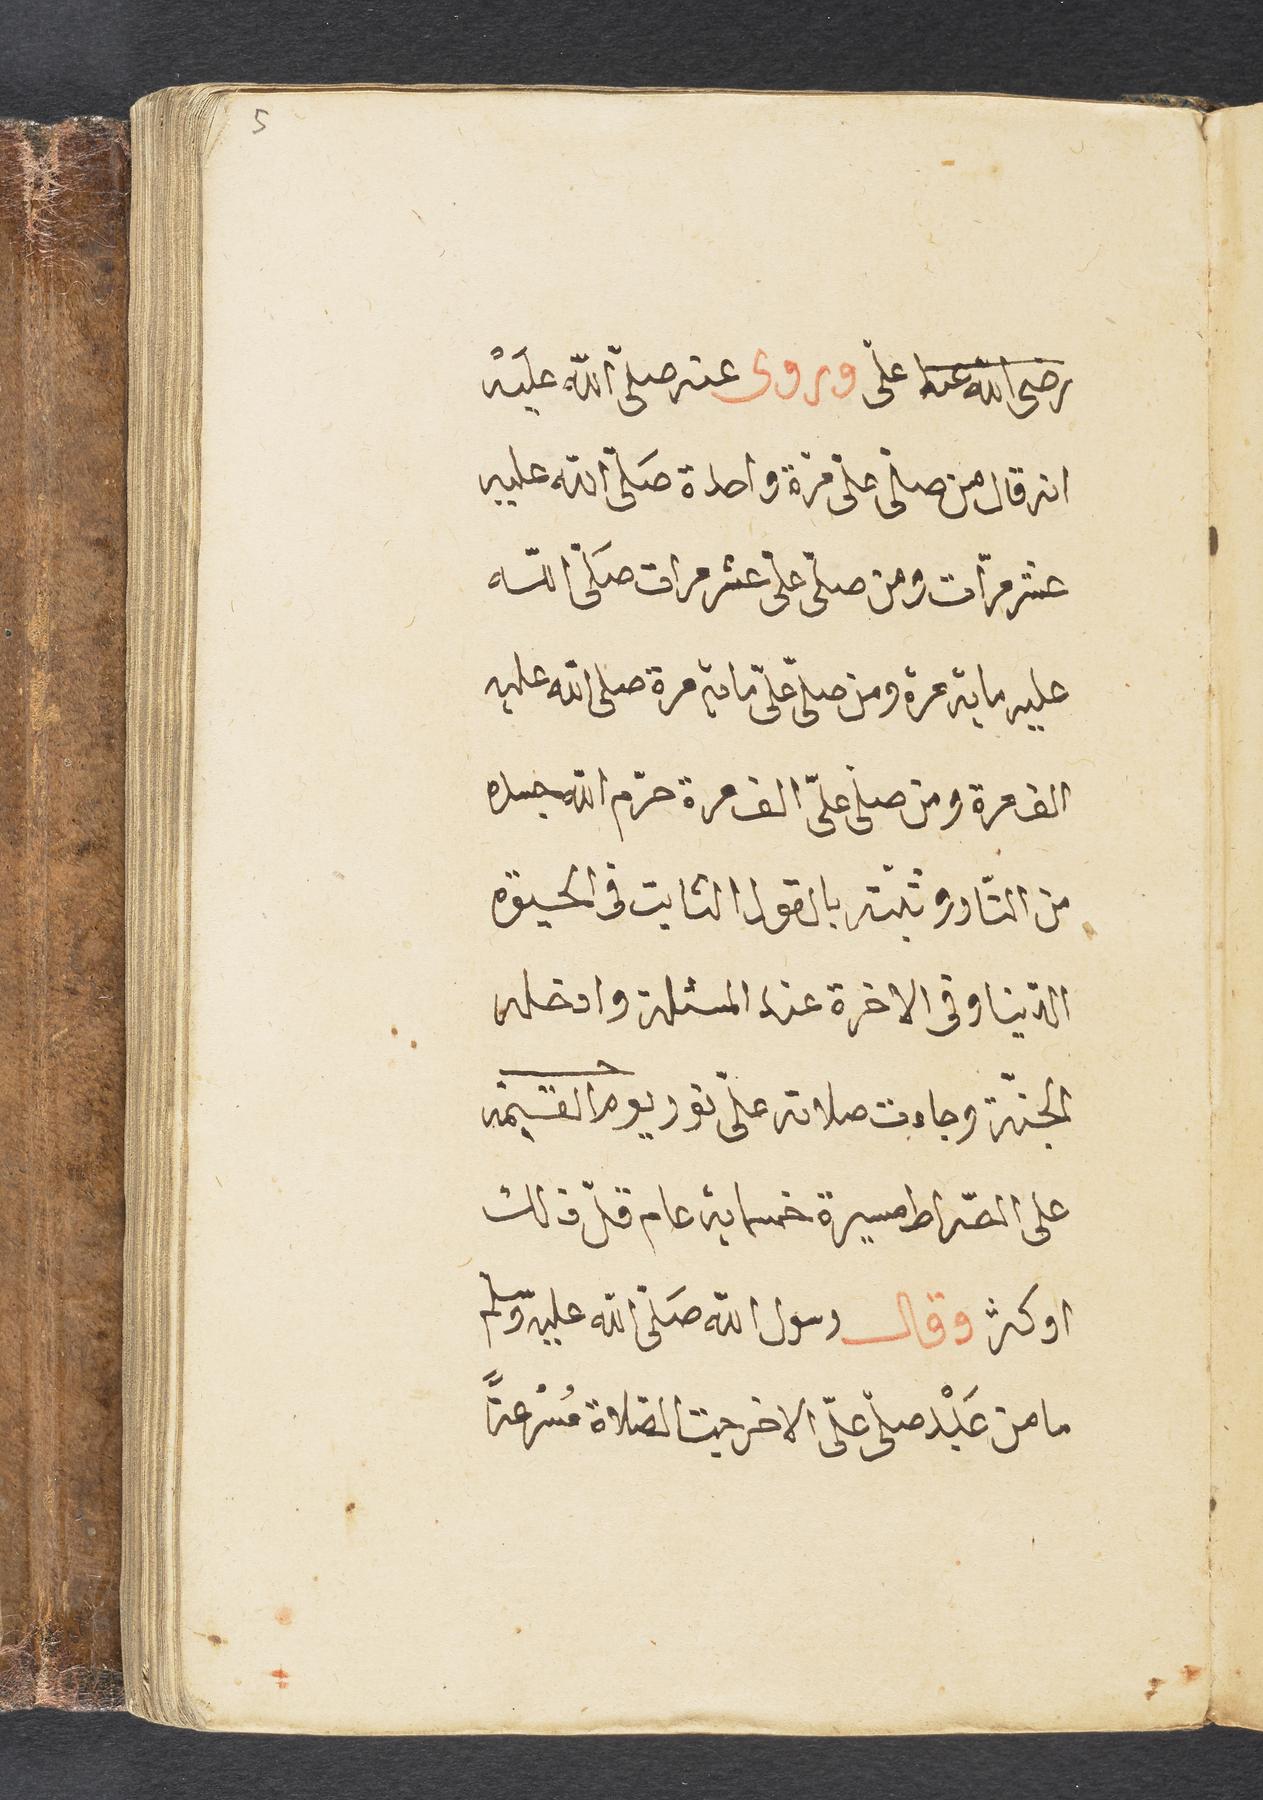 5
رضى الله عنه على وروى عنه صلّى الله عليَهْ
انه قال من صلّى علىّ مرّة واحدة صَلّى الله عليه
عشر مرّات ومن صلّى علىّ عشر مرات صَلّى اللّه
عليه ماية مرة ومن صلّى علىّ ماية مرة صلى الله عليه
الف مرة ومن صلّى علىّ الف مرة حرّم الله جسده
من النّار وثبّته بالقول الثابت فى الحيوة
الدّنيا وفى الاخرة عند المسئلة وادخله
الجنّة وجاءت صلاته علىّ نور يوم القيمة
على الصّراط مسيرة خمسماية عام قلّ ذلك
او كثر وقال رسول الله صَلّى الله عليه وسلم
ما من عَبْد صلّى علىّ الا خرجت الصّلاة مُسْرعةً